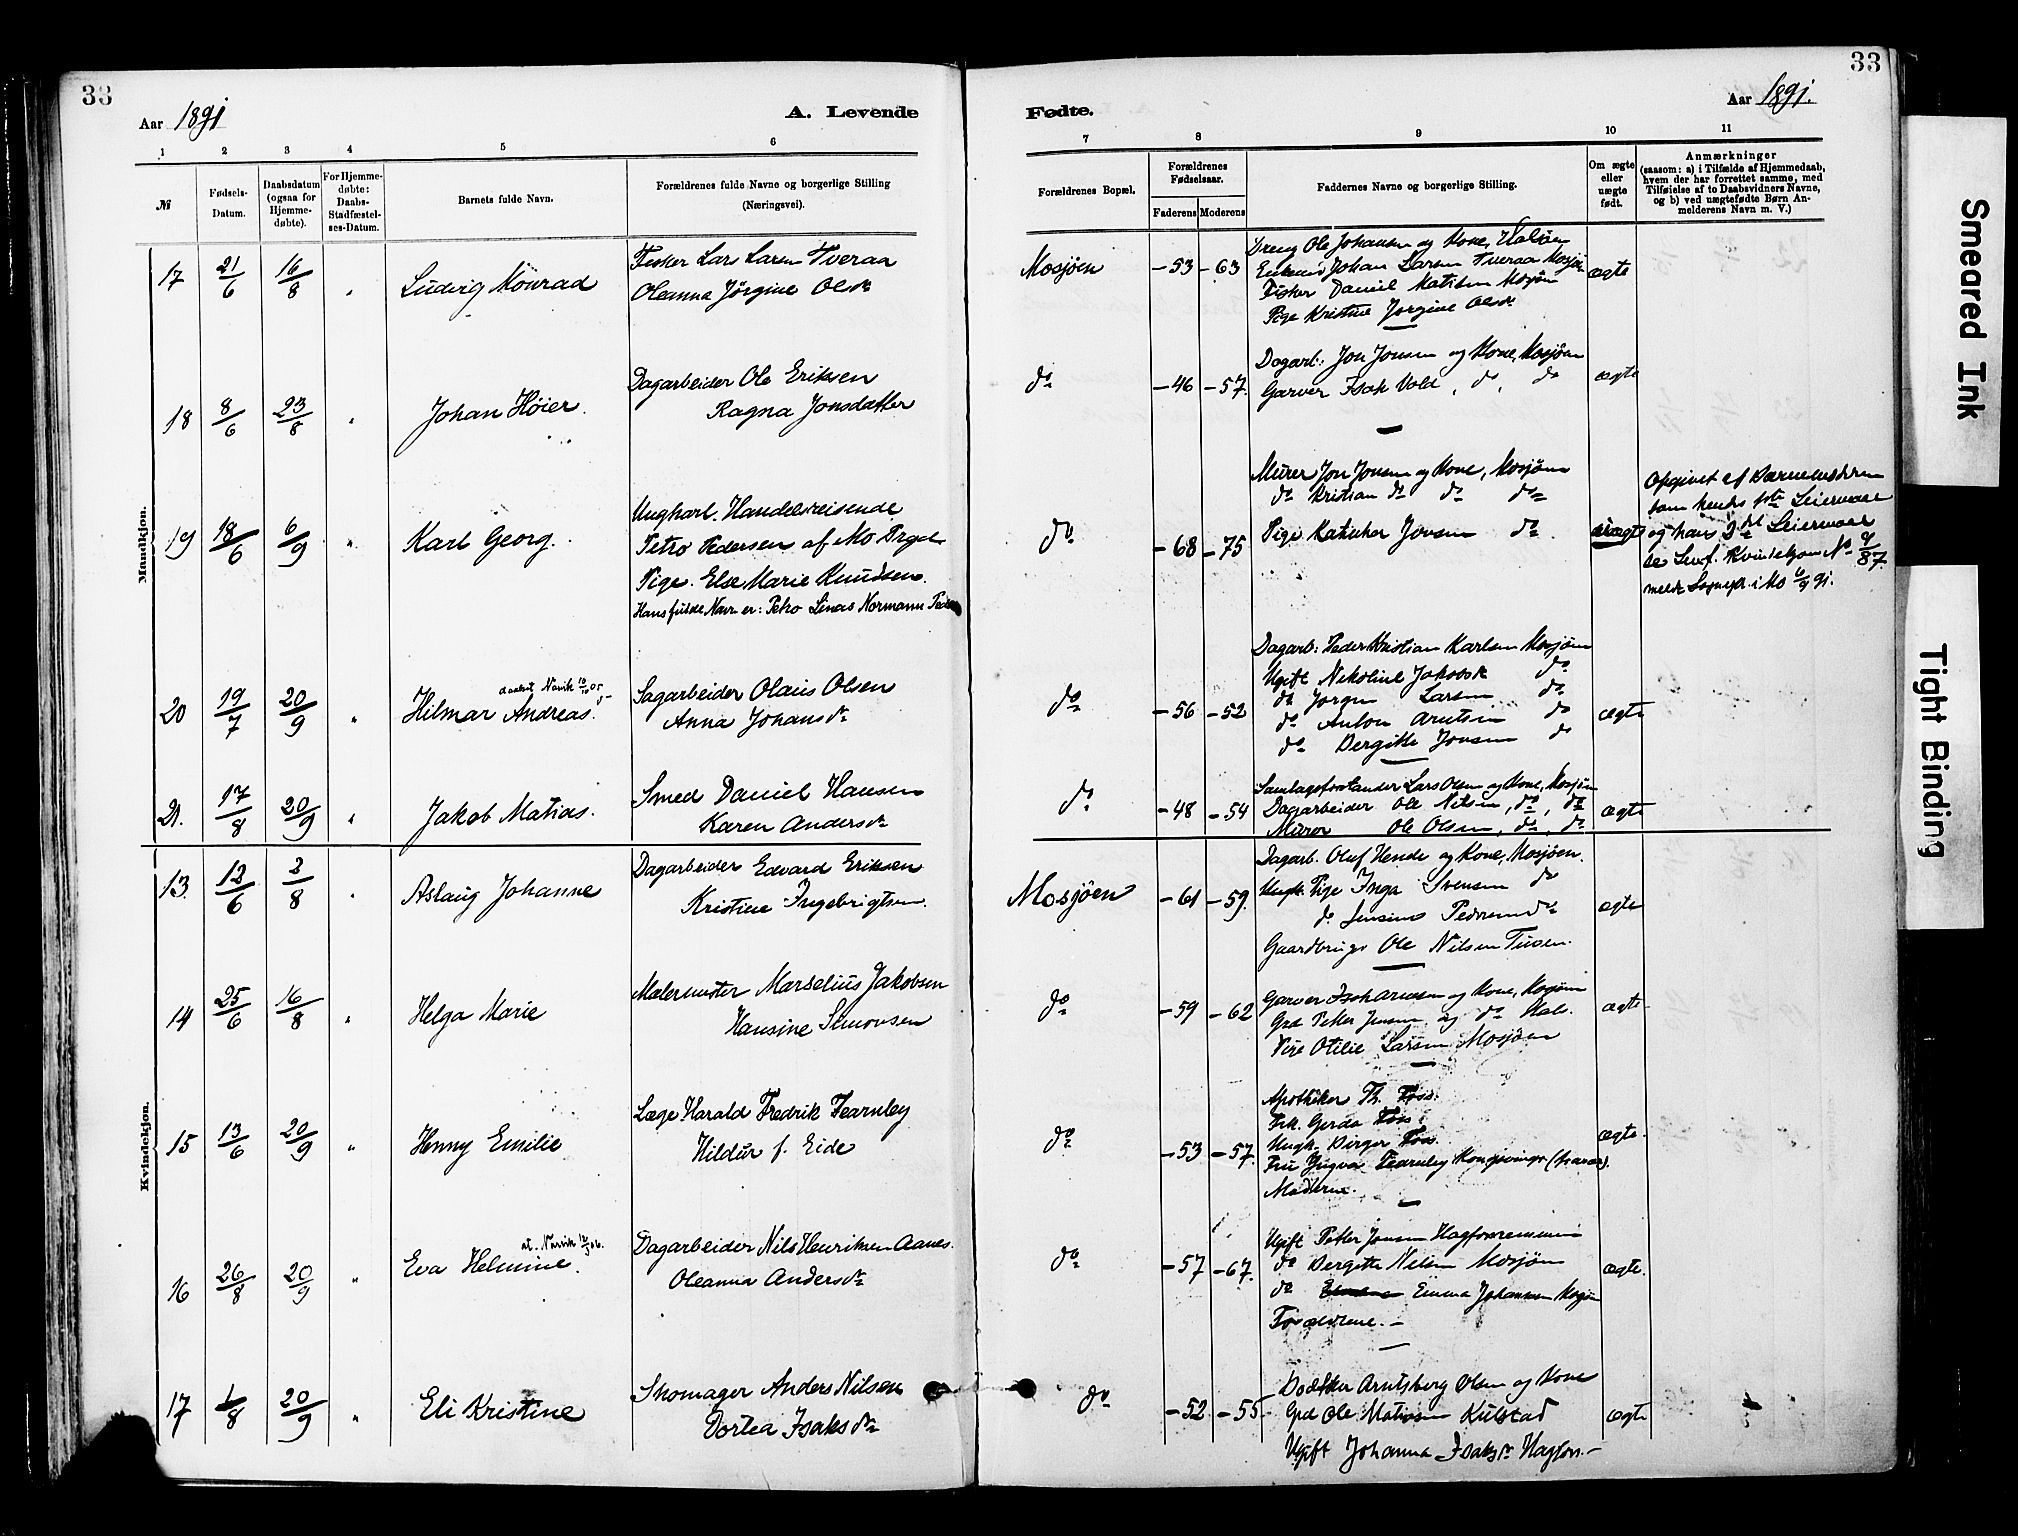 33
Aar 1891
A. Levende
1 2 3 4 5 6
№
Fødsels-Datum.
Daabsdatum (ogsaa for Hjemmedøbte).
For Hjemmedøbte: Daabs-Stadfæstelses-Datum.
Barnets fulde Navn.
Forældrenes fulde Navne og borgerlige Stilling
(Næringsvei).
Mandkjøn.
17 21/6 16/8 " Ludvig Monrad
Fisker Lars Larsen Tveraa
Oleanna Jørgine Olsdr
18 8/6 23/8 " Johan Høier.
Dagarbeider Ole Eriksen
Ragna Jonsdatter
19 18/6 6/9 " Karl Georg.
Ungkarl. Handelsreisende
Petro Pedersen af Mo
Pige. Else Marie Knudsen.
Hans fulde Navn er: Petro Linas Normann
20 19/7 20/9 " Hilmar Andreas.
Sagarbeider Olaus Olsen
Anna Johansdr
21. 17/8 20/9 " Jakob Matias.
Smed Daniel Hansen
Karen Andersdr
Kvindekjøn.
13. 12/6 2/8 " Aslaug Johanne
Dagarbeider Edvard Eriksen
Kristine Ingebrigtsen.
14 25/6 16/8 " Helga Marie
Malermester Marselius Jakobsen
Hansine Simonsen
15 13/6 20/9 " Henny Emilie
Læge Harald Fredrik Fearnley
Hildur f. Eide
16 26/8 20/9 " Eva Helmine.
Dagarbeider Nils Henriksen Aanes.
Oleanna Andersdr
17 1/8 20/9 " Eli Kristine
Skomager Anders Nilsen
Dortea Isaksdr
33
Aar 1891.
Fødte.
7 8 9 10 11
Forældrenes Bopæl.
Forældrenes Fødselsaar.
Faderens Moderens
Faddernes Navne og borgerlige Stilling.
Om ægte eller uægte født.
Anmærkninger
(saasom: a) i Tilfælde af Hjemmedaab,
hvem der har forrettet samme, med
Tilføielse af to Daabsvidners Navne,
og b) ved uægtefødte Børn Anmelderens Navn m. V.)
Mosjøen -53 -63
Dreng Ole Johansen og Kone, Halsøen
Johan Larsen Tveraa Mosjøen
Fisker Daniel Matisen Mosjøen
Pige Kristine Jørgine Olsdr
ægte
do -46 -57.
Dagarb. Jon Jonsen og Kone, Mosjøen
Garver Isak Vold, do, do
ægte
do -68 -75
Murer Jon Jonsen og Kone, Mosjøen
do Kristian do do do
Pige Jonsen do.
uægte
do -56 -52
Dagarb: Peder Kristian Karlsen Mosjøen
Ugift Nikoline Jakobsdr do
do Jørgen Larsen do
do Anton Arntsen do
do Bergitte Jonsen do
ægte
do -48 -54
Samlagsforstander Lars Olsen og Kone, Mosjøen
Dagarbeider Ole Nilsen, do, do
Murer Ole Olsen, do, do
ægte
Mosjøen -61 -59.
Dagarb. Oluf Hende og Kone, Mosjøen.
Pige Inga Svensen do
do Pedersen do
Gaardbruger Ole Nilsen
ægte
do -59 -62
Garver og Kone, Mosjøen
Grd Petter Jensen og do Hals.
Pige Otilie Larsen Mosjøen
ægte
do -53 -57.
Apotheker Th. Foss.
Frk. Gerda Foss.
Ungk. Birger Foss.
Fru Yngva Fearnley Kongsvinger
Moderen.
ægte.
do -57 -67.
Ugift Petter Jensen
do Bergitte Nilsen Mosjøen
do Emma Johansen Mosjøen
Forældrene.
ægte.
do -52 -55
Bødker Arntsberg Olsen og Kone
Grd Ole Matiasen Kulstad
Ugift Johanna Isaksdr Hagfors
ægte
Smeared Ink
Tight Binding